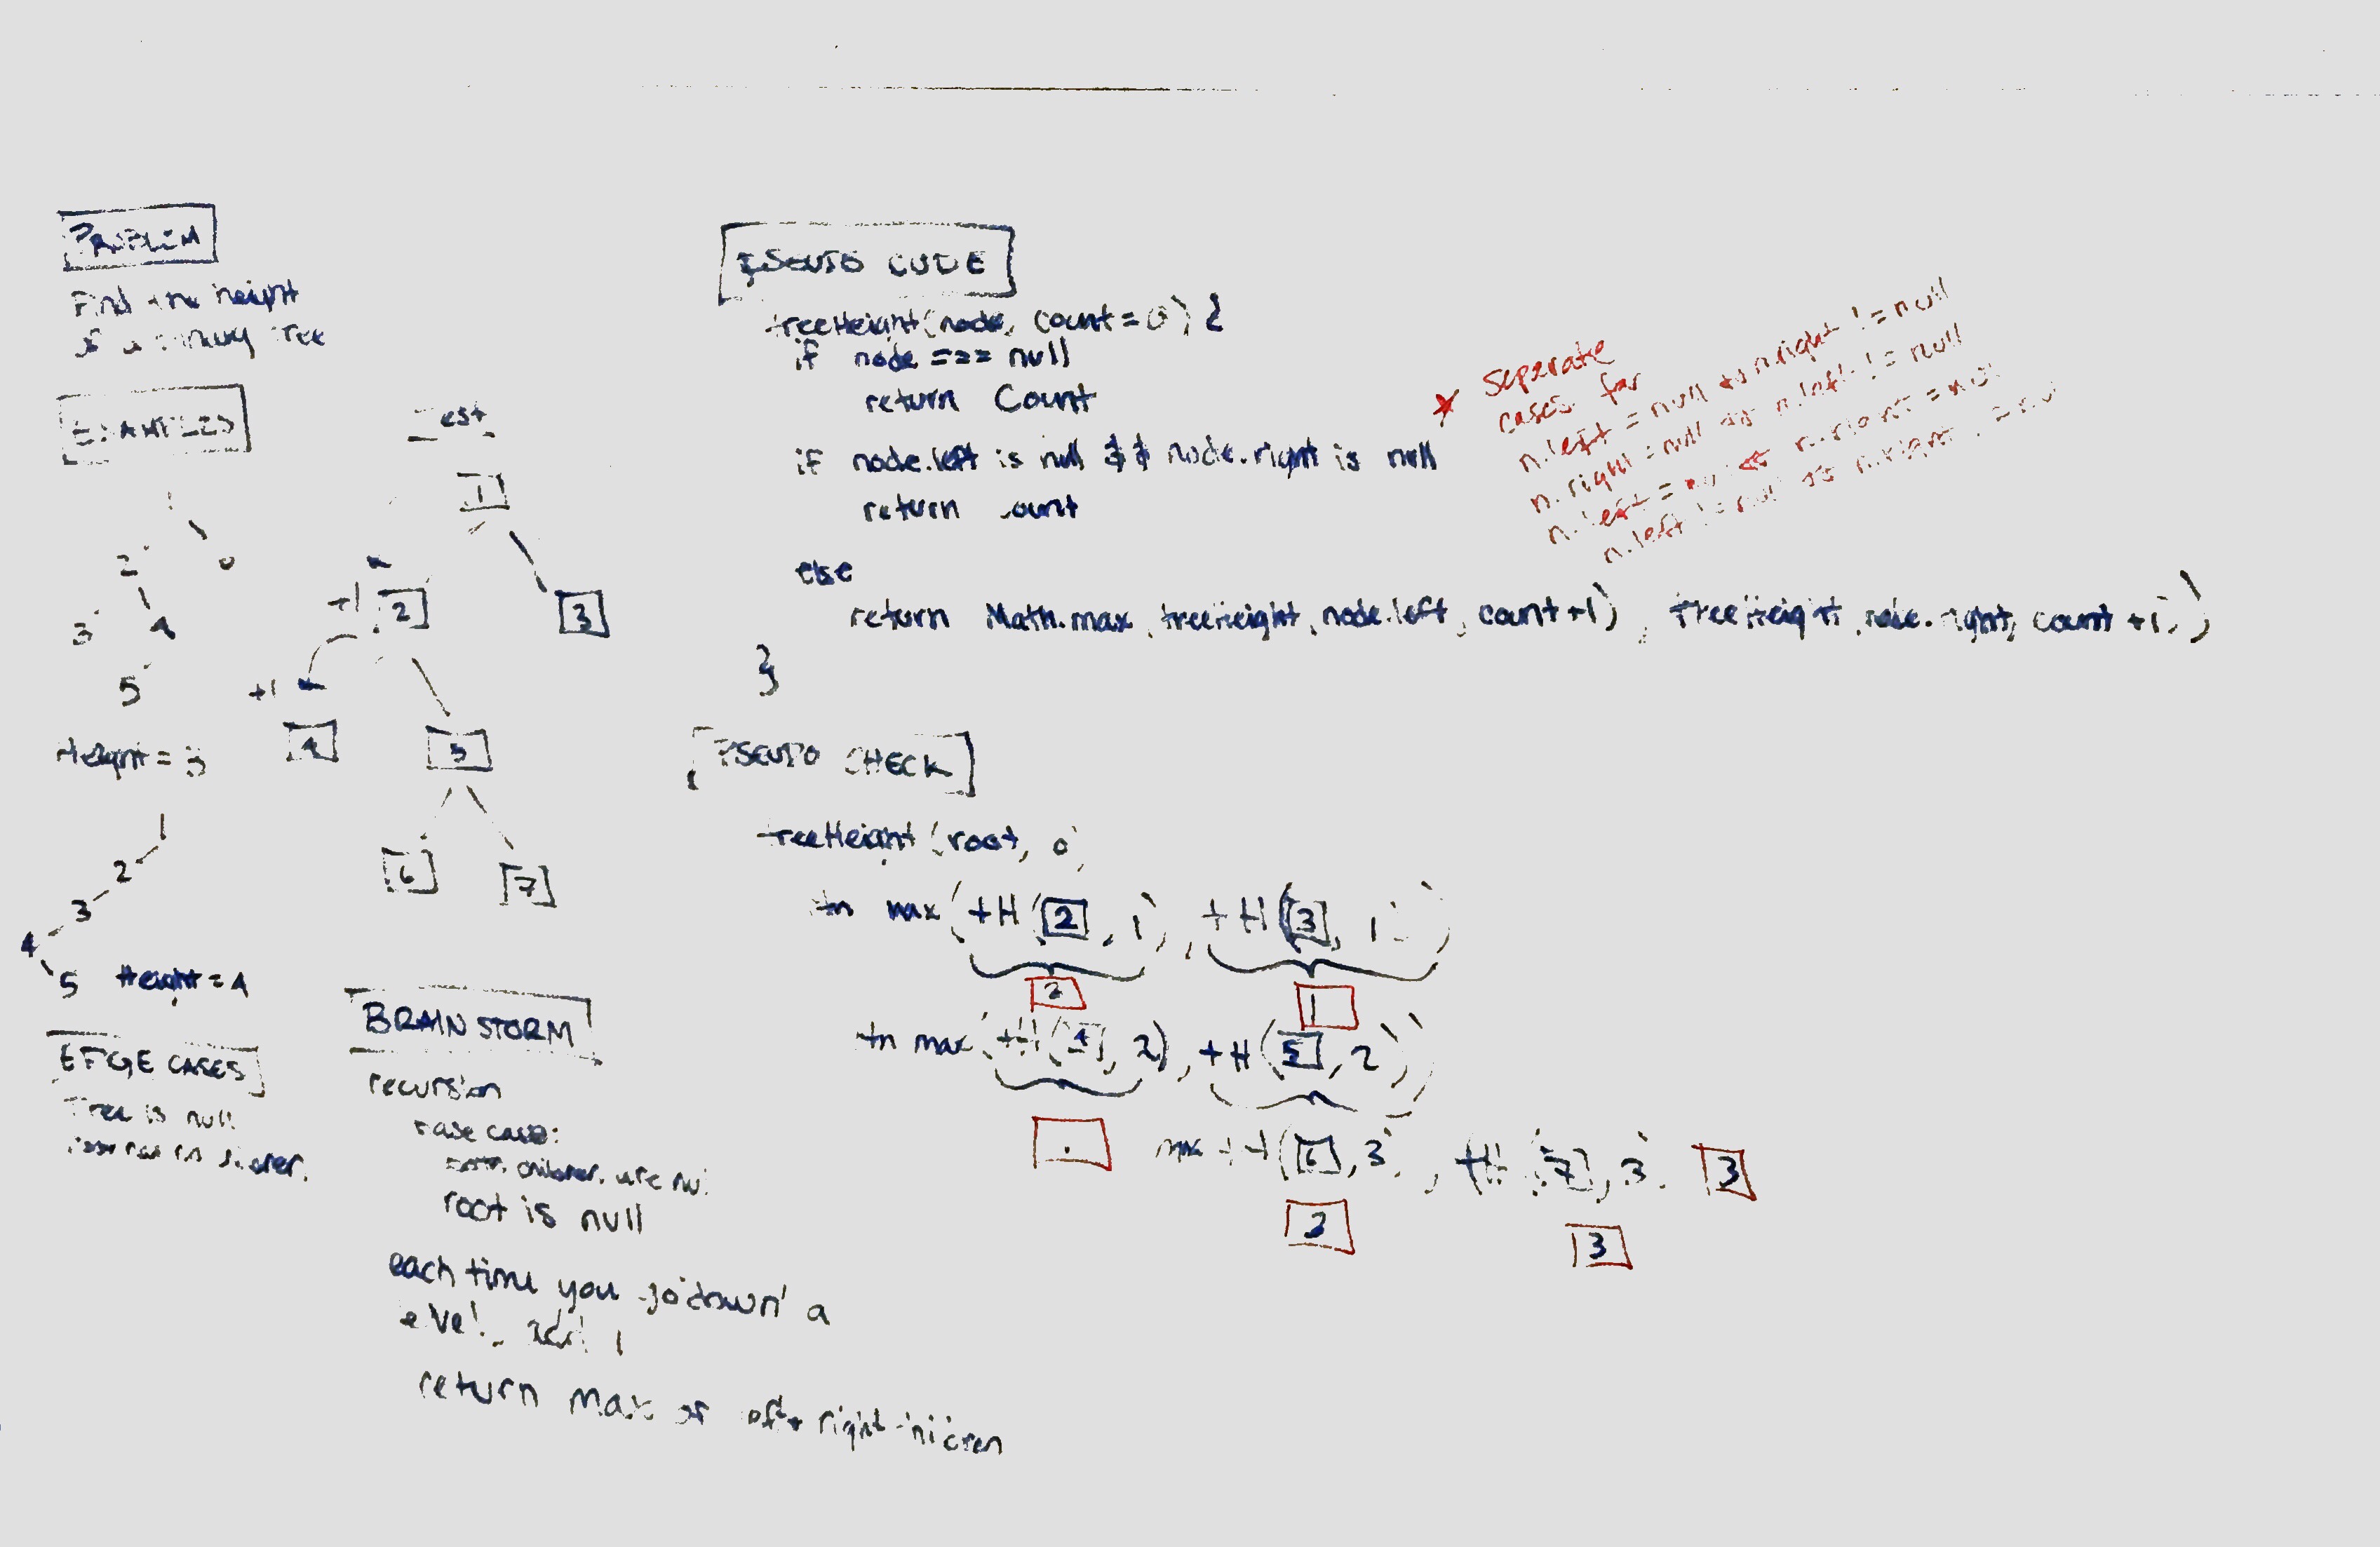 PROBLEM
Find the height
of a binary tree
EXAMPLES
1
2
3 4
5
Height = 3
1
2
3
4
5 Height = 4
EDGE CASES
Tree is null
Test
1
+1 2 3
+1
4 5
6 7
BRAINSTORM
recursion
base case:
children are
root is null
each time you go down a
level, add 1
return max of left + right
PSEUDO CODE
treeHeight(node, count = 0) {
if node === null
return Count
if node.left is null && node.right is null
return count
else
return Math.max(treeHeight(node.left, count+1), treeHeight(node.right, count+1))
}
* Seperate
cases for
n.left = null && n.right != null
n.right = null && n.left != null
n.left = null && n.right = null
n.left != null && n.right != null
PSEUDO CHECK
treeHeight(root, 0)
rtn max(tH(2, 1), tH(3, 1))
2 1
rtn max(tH(4, 2), tH(5, 2))
max tH(6, 3), tH(7, 3) 3
3 3